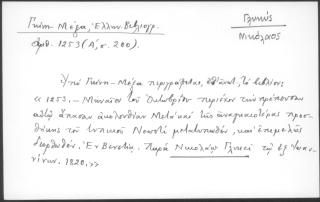 Γκίνη-Μέξα, Ἑλλην. Βιβλιογρ.
ἀριθ. 1253 (Α', σ. 200).
Γλυκύς
Νικόλαος
Ὑπό Γκίνη-Μέξα περιγράφεται,
« 1253.— Μηναῖον τοῦ Ὀκτωβρίου περιέχον τήν πρέπουσαν
αὐτῷ ἅπασαν ἀκολουθίαν Μετά καί τῆς ἀναγκαιοτέρας προσ-
θήκης τοῦ τυπικοῦ Νεωστί μετατυπωθέν, καί ἐπιμελῶς
διορθωθέν. Ἐν Βενετίᾳ. Παρά Νικολάῳ Γλυκεῖ τῷ ἐξ Ἰωαν-
νίνων. 1820.»